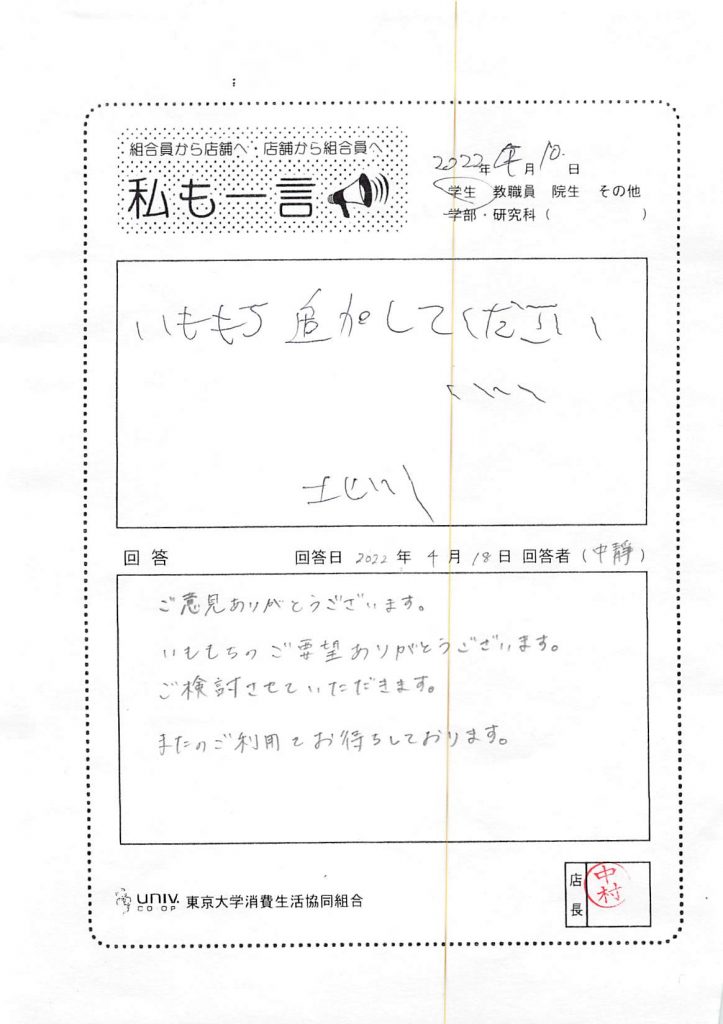 組合員から店舗へ・店舗から組合員へ
私も一言
2022年4月10日
学生 教職員 院生 その他
学部・研究科( )
いももち追加してください
回答 回答日 2022年4月18日 回答者(中靜)
ご意見ありがとうございます。
いももちのご要望ありがとうございます。
ご検討させていただきます。
またのご利用てお待ちしております。
UNIV. CO-OP 東京大学消費生活協同組合
店長 中村